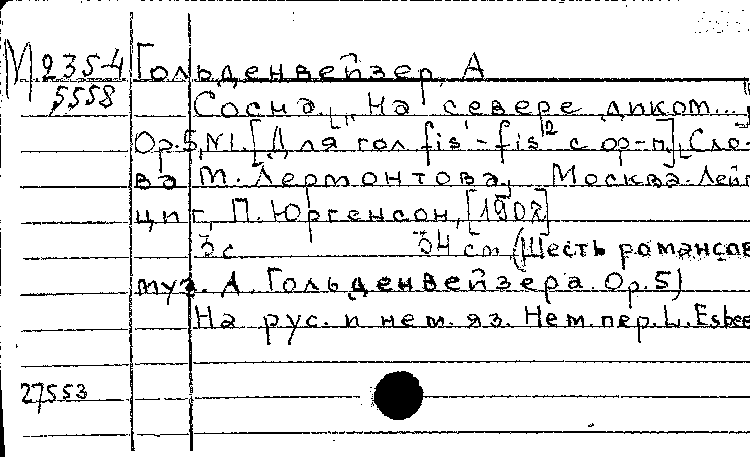 М 235-4 Гольденвейзер, А
5558 Сосна. [„На севере диком..."]
Ор. 5, N1. [Для гол fis'-fis'² с ф-п.], Сло-
ва М. Лермонтова, Москва-Лейп
циг, П. Юргенсон, [1907]
3 с 34 см (Шесть романсов
муз. А. Гольденвейзера. Ор. 5)
На рус. и нем. яз. Нем. пер. L. Esbee
27553